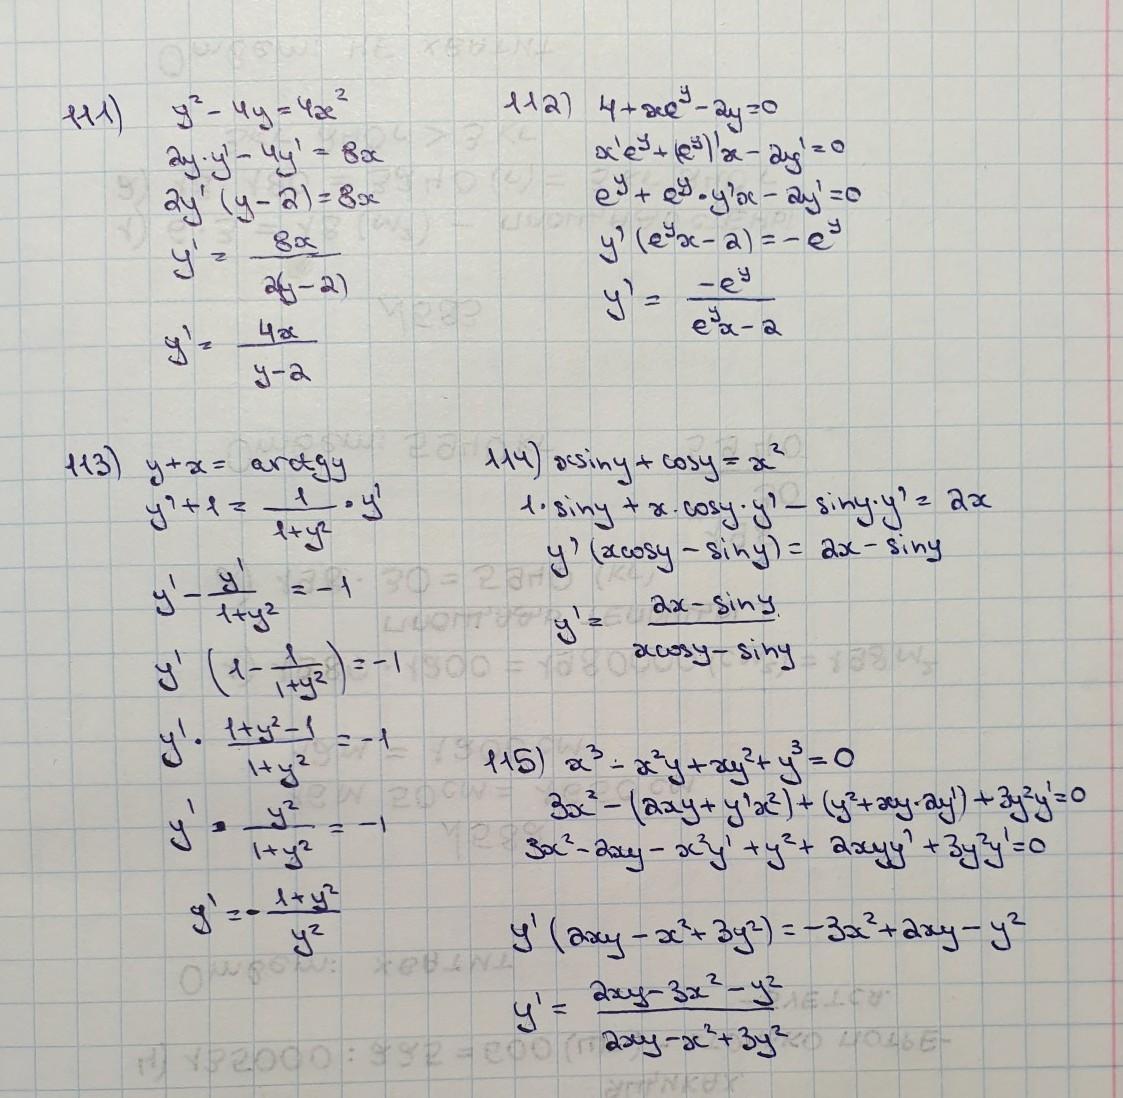 111) y² - 4y = 4x²
2y·y' - 4y' = 8x
2y' (y - 2) = 8x
y' = 8x / 2(y - 2)
y' = 4x / y - 2
112) 4 + xe^y - 2y = 0
x'e^y + (e^y)'x - 2y' = 0
e^y + e^y·y'x - 2y' = 0
y' (e^y x - 2) = -e^y
y' = -e^y / e^y x - 2
113) y + x = arctgy
y' + 1 = 1 / 1+y² · y'
y' - y' / 1+y² = -1
y' (1 - 1 / 1+y²) = -1
y' · 1+y²-1 / 1+y² = -1
y' · y² / 1+y² = -1
y' = - 1+y² / y²
114) xsiny + cosy = x²
1·siny + x·cosy·y' - siny·y' = 2x
y' (xcosy - siny) = 2x - siny
y' = 2x - siny / xcosy - siny
115) x³ - x²y + xy² + y³ = 0
3x² - (2xy + y'x²) + (y² + xy·2y') + 3y²y' = 0
3x² - 2xy - x²y' + y² + 2xyy' + 3y²y' = 0
y' (2xy - x² + 3y²) = -3x² + 2xy - y²
y' = 2xy - 3x² - y² / 2xy - x² + 3y²